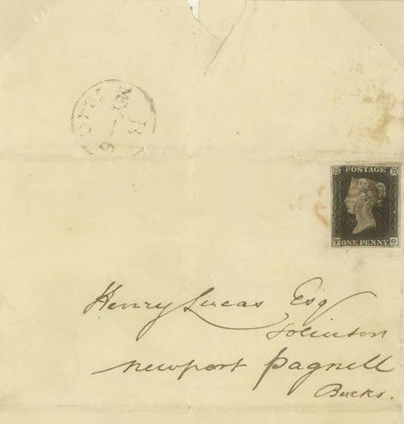 POSTAGE
ONE PENNY
Henry Lucas Esq
Newport Pagnell
Bucks.